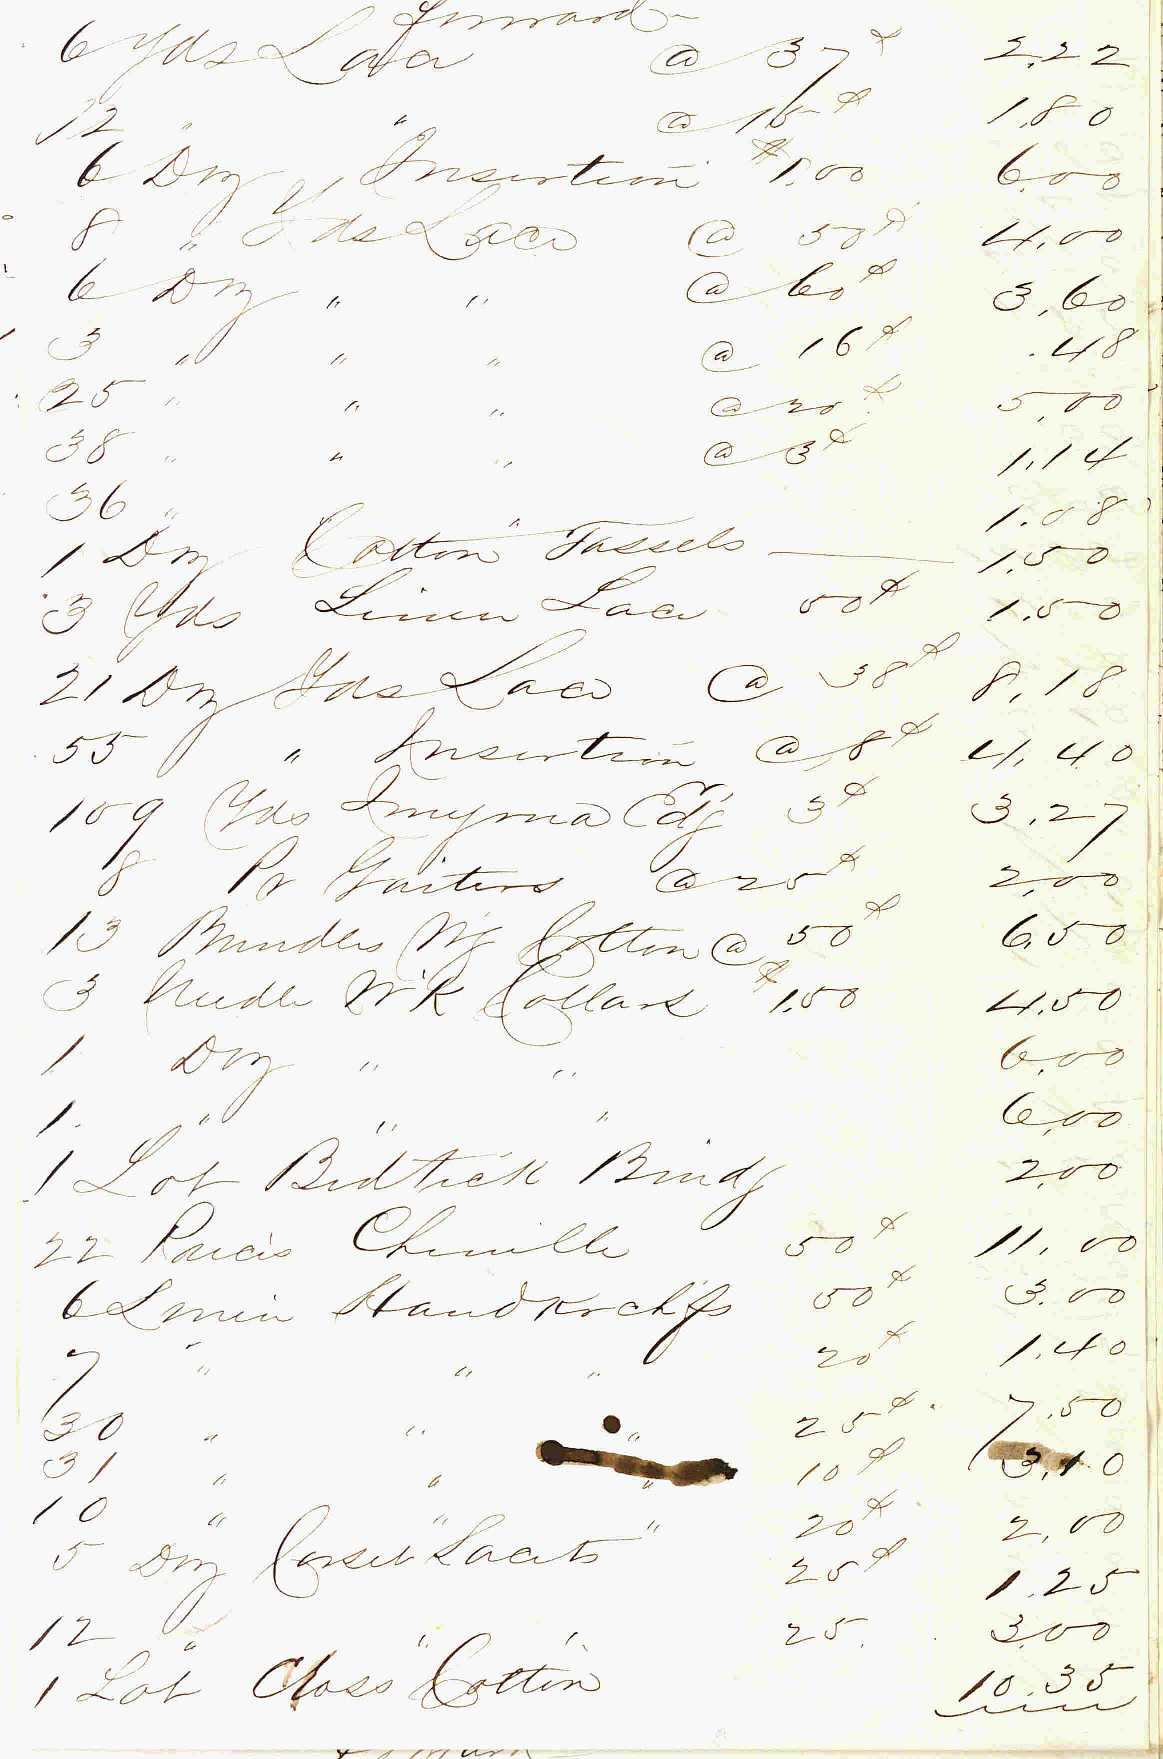 forward
6 Yds Lace @ 37¢ 2.22
12 " " @ 15¢ 1.80
6 Doz Insertion $1.00 6.00
8 " Yds Lace @ 50¢ 4.00
6 Doz " " @ 60¢ 3.60
3 " " " @ 16¢ .48
25 " " " @ 20¢ 5.00
38 " " " @ 3¢ 1.14
36 " " 1.08
1 Doz Cotton Tassels — 1.50
3 Yds Linen Lace 50¢ 1.50
21 Doz Yds Lace @ 38¢ 8.18
55 " Insertion @ 8¢ 4.40
109 Yds Smyrna Edg 3¢ 3.27
8 Pr Gaiters @ 25¢ 2.00
13 Bundles Cotton @ 50¢ 6.50
3 Needle W'k Collars $1.50 4.50
1 Doz " " 6.00
1 " " " 6.00
1 Lot Bedtick Bindg 2.00
22 Pieces Chenille 50¢ 11.00
6 Linen Handkrchfs 50¢ 3.00
7 " " " 20¢ 1.40
30 " " " 25¢ 7.50
31 " " " 10¢ 3.10
10 " " " 20¢ 2.00
5 Doz Corset Lacets 25¢ 1.25
12 " " " 25 3.00
1 Lot Cotton 10.35